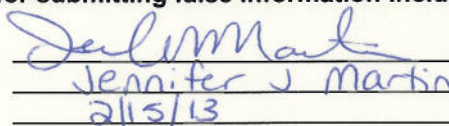 for submitting false information
Jennifer J Martin
2/15/13